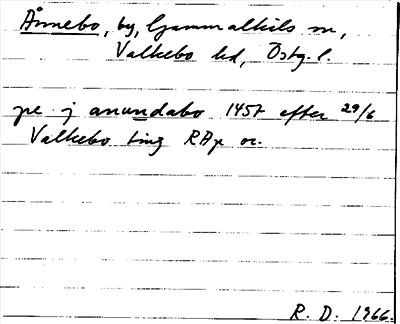 Ånnebo, by, Gammalkils sn,
Valkebo hd, Östg. l.
pe j anundabo 1457 efter 29/6
Valkebo ting RAp or.
R. D. 1966.